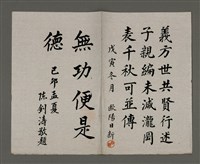 義方世共賢行述
子親編未減瀧岡
表千秋可並傳
戊寅冬月 歐陽日新
無功便是
德
己卯孟夏
陈剑濤敬題